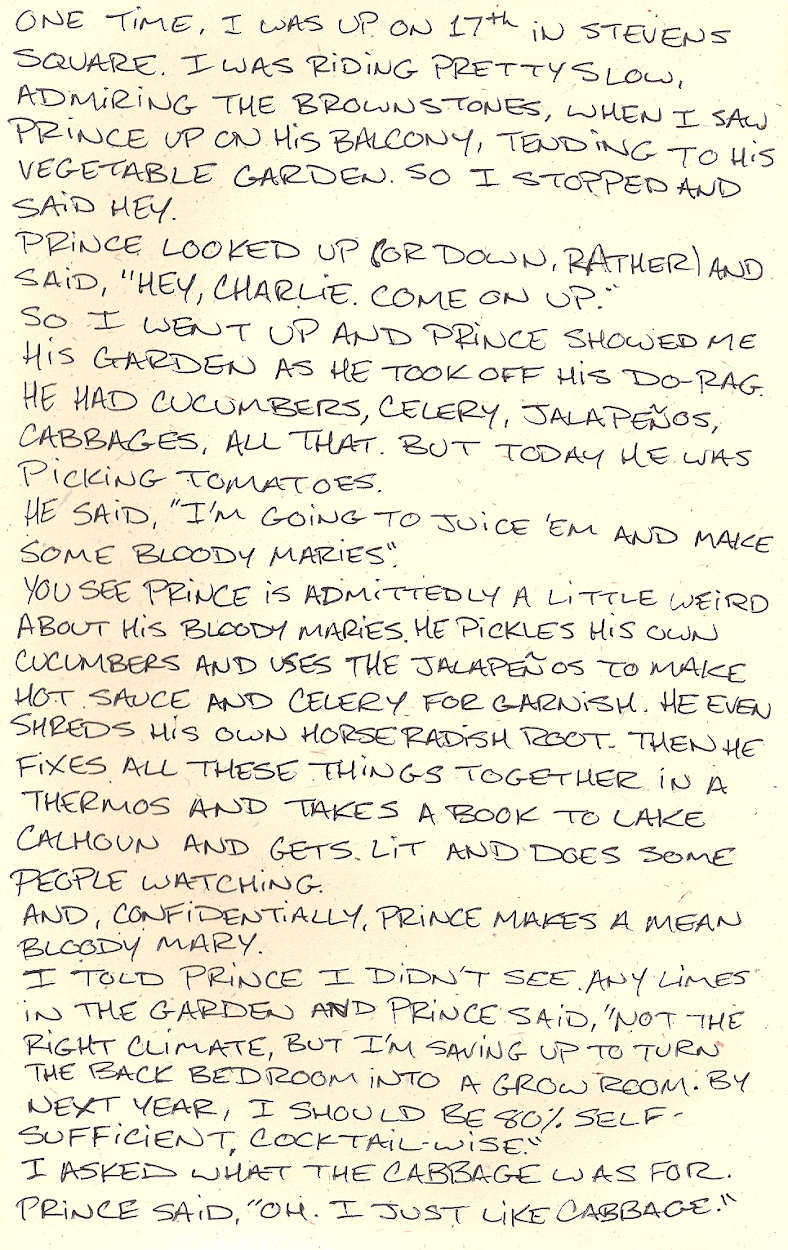 ONE TIME, I WAS UP ON 17th IN STEVENS
SQUARE. I WAS RIDING PRETTY SLOW,
ADMIRING THE BROWNSTONES, WHEN I SAW
PRINCE UP ON HIS BALCONY, TENDING TO HIS
VEGETABLE GARDEN. SO I STOPPED AND
SAID HEY.
PRINCE LOOKED UP (OR DOWN, RATHER) AND
SAID, "HEY, CHARLIE. COME ON UP."
SO I WENT UP AND PRINCE SHOWED ME
HIS GARDEN AS HE TOOK OFF HIS DO-RAG.
HE HAD CUCUMBERS, CELERY, JALAPEÑOS,
CABBAGES, ALL THAT. BUT TODAY HE WAS
PICKING TOMATOES.
HE SAID, "I'M GOING TO JUICE 'EM AND MAKE
SOME BLOODY MARIES".
YOU SEE PRINCE IS ADMITTEDLY A LITTLE WEIRD
ABOUT HIS BLOODY MARIES. HE PICKLES HIS OWN
CUCUMBERS AND USES THE JALAPEÑOS TO MAKE
HOT SAUCE AND CELERY FOR GARNISH. HE EVEN
SHREDS HIS OWN HORSERADISH ROOT. THEN HE
FIXES ALL THESE THINGS TOGETHER IN A
THERMOS AND TAKES A BOOK TO LAKE
CALHOUN AND GETS LIT AND DOES SOME
PEOPLE WATCHING.
AND, CONFIDENTIALLY, PRINCE MAKES A MEAN
BLOODY MARY.
I TOLD PRINCE I DIDN'T SEE ANY LIMES
IN THE GARDEN AND PRINCE SAID, "NOT THE
RIGHT CLIMATE, BUT I'M SAVING UP TO TURN
THE BACK BEDROOM INTO A GROW ROOM. BY
NEXT YEAR, I SHOULD BE 80% SELF-
SUFFICIENT, COCKTAIL-WISE."
I ASKED WHAT THE CABBAGE WAS FOR.
PRINCE SAID, "OH. I JUST LIKE CABBAGE."